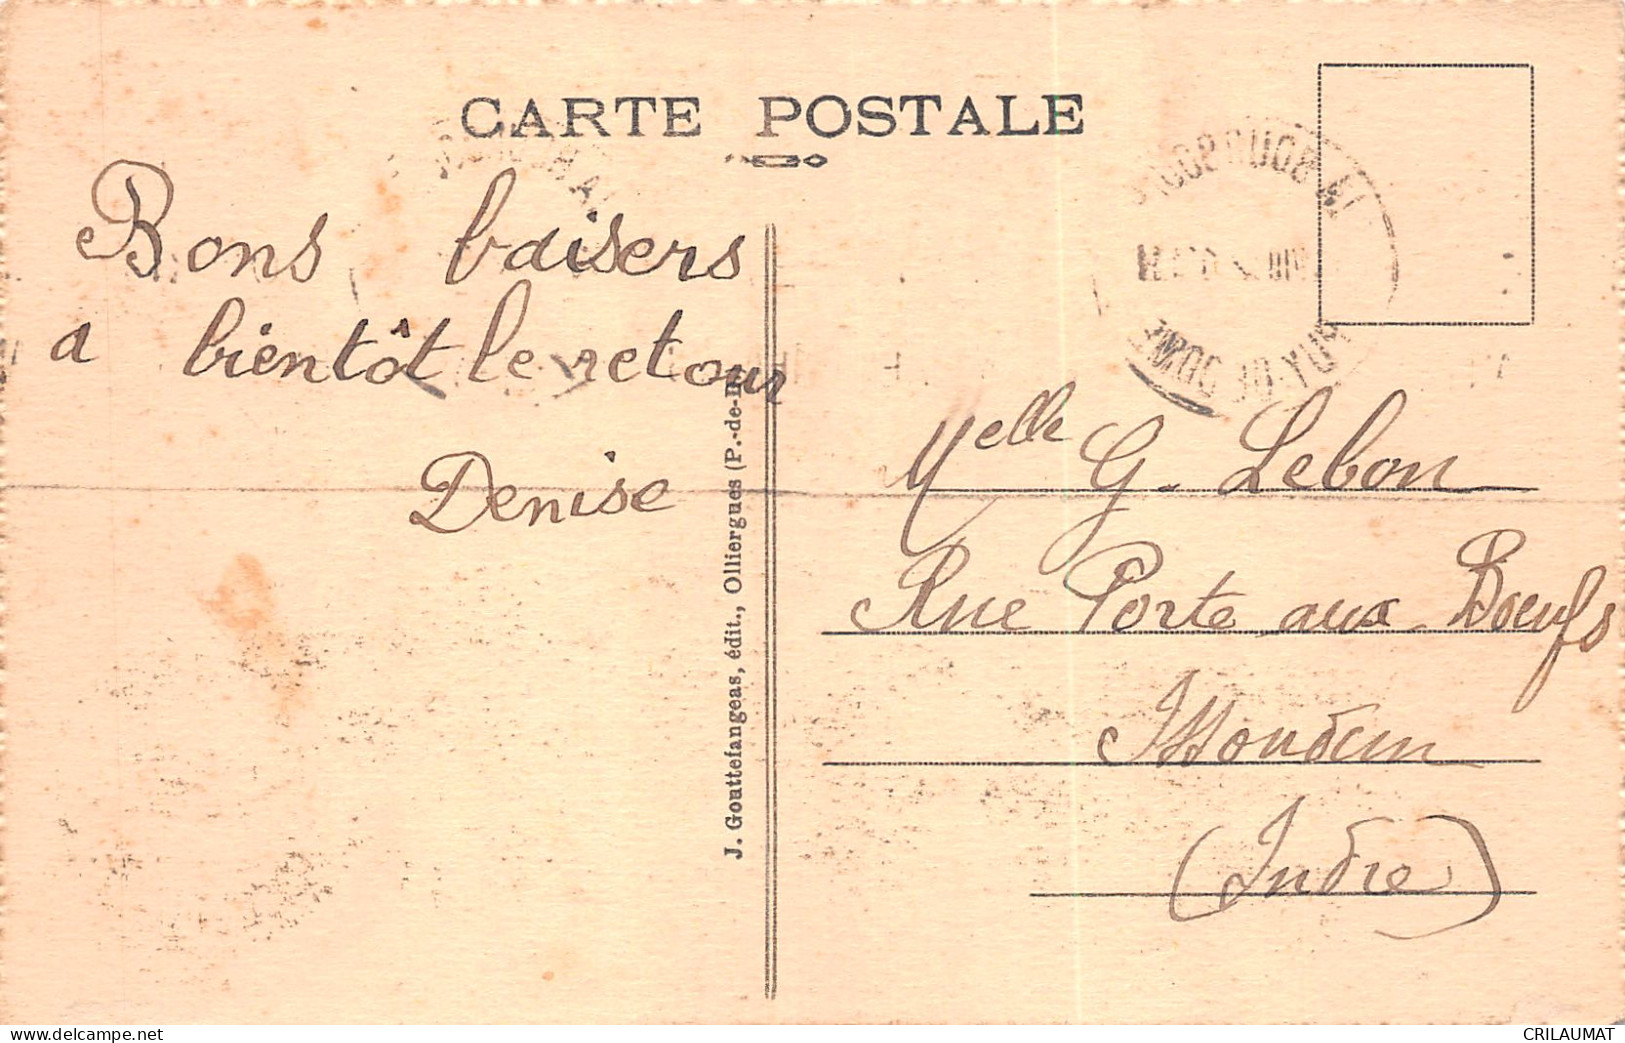 CARTE POSTALE
Bons baisers
a bientôt le retour
Denise
J. Gouttefangeas, édit., Olliergues (P.-de-D.)
Melle G. Lebon
Rue Porte aux Boeufs
Issoudun
(Indre)
www.delcampe.net
CRILAUMAT